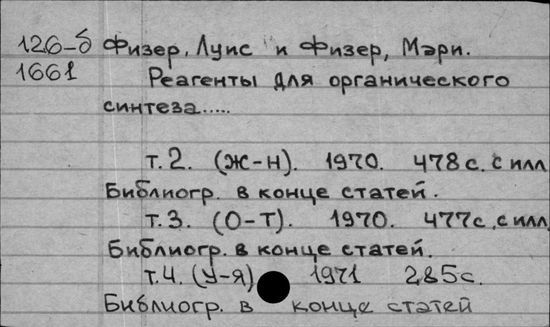 126-б Физер, Луис и Физер, Мэри.
1661 Реагенты для органического
синтеза.....
т.2. (Ж-Н). 1970. 478с. с илл
Библиогр. в конце статей.
т.3. (О-Т). 1970. 477с. с илл.
Библиогр. в конце статей.
т.4. (У-Я) 1971 285с.
Библиогр. в конце статей